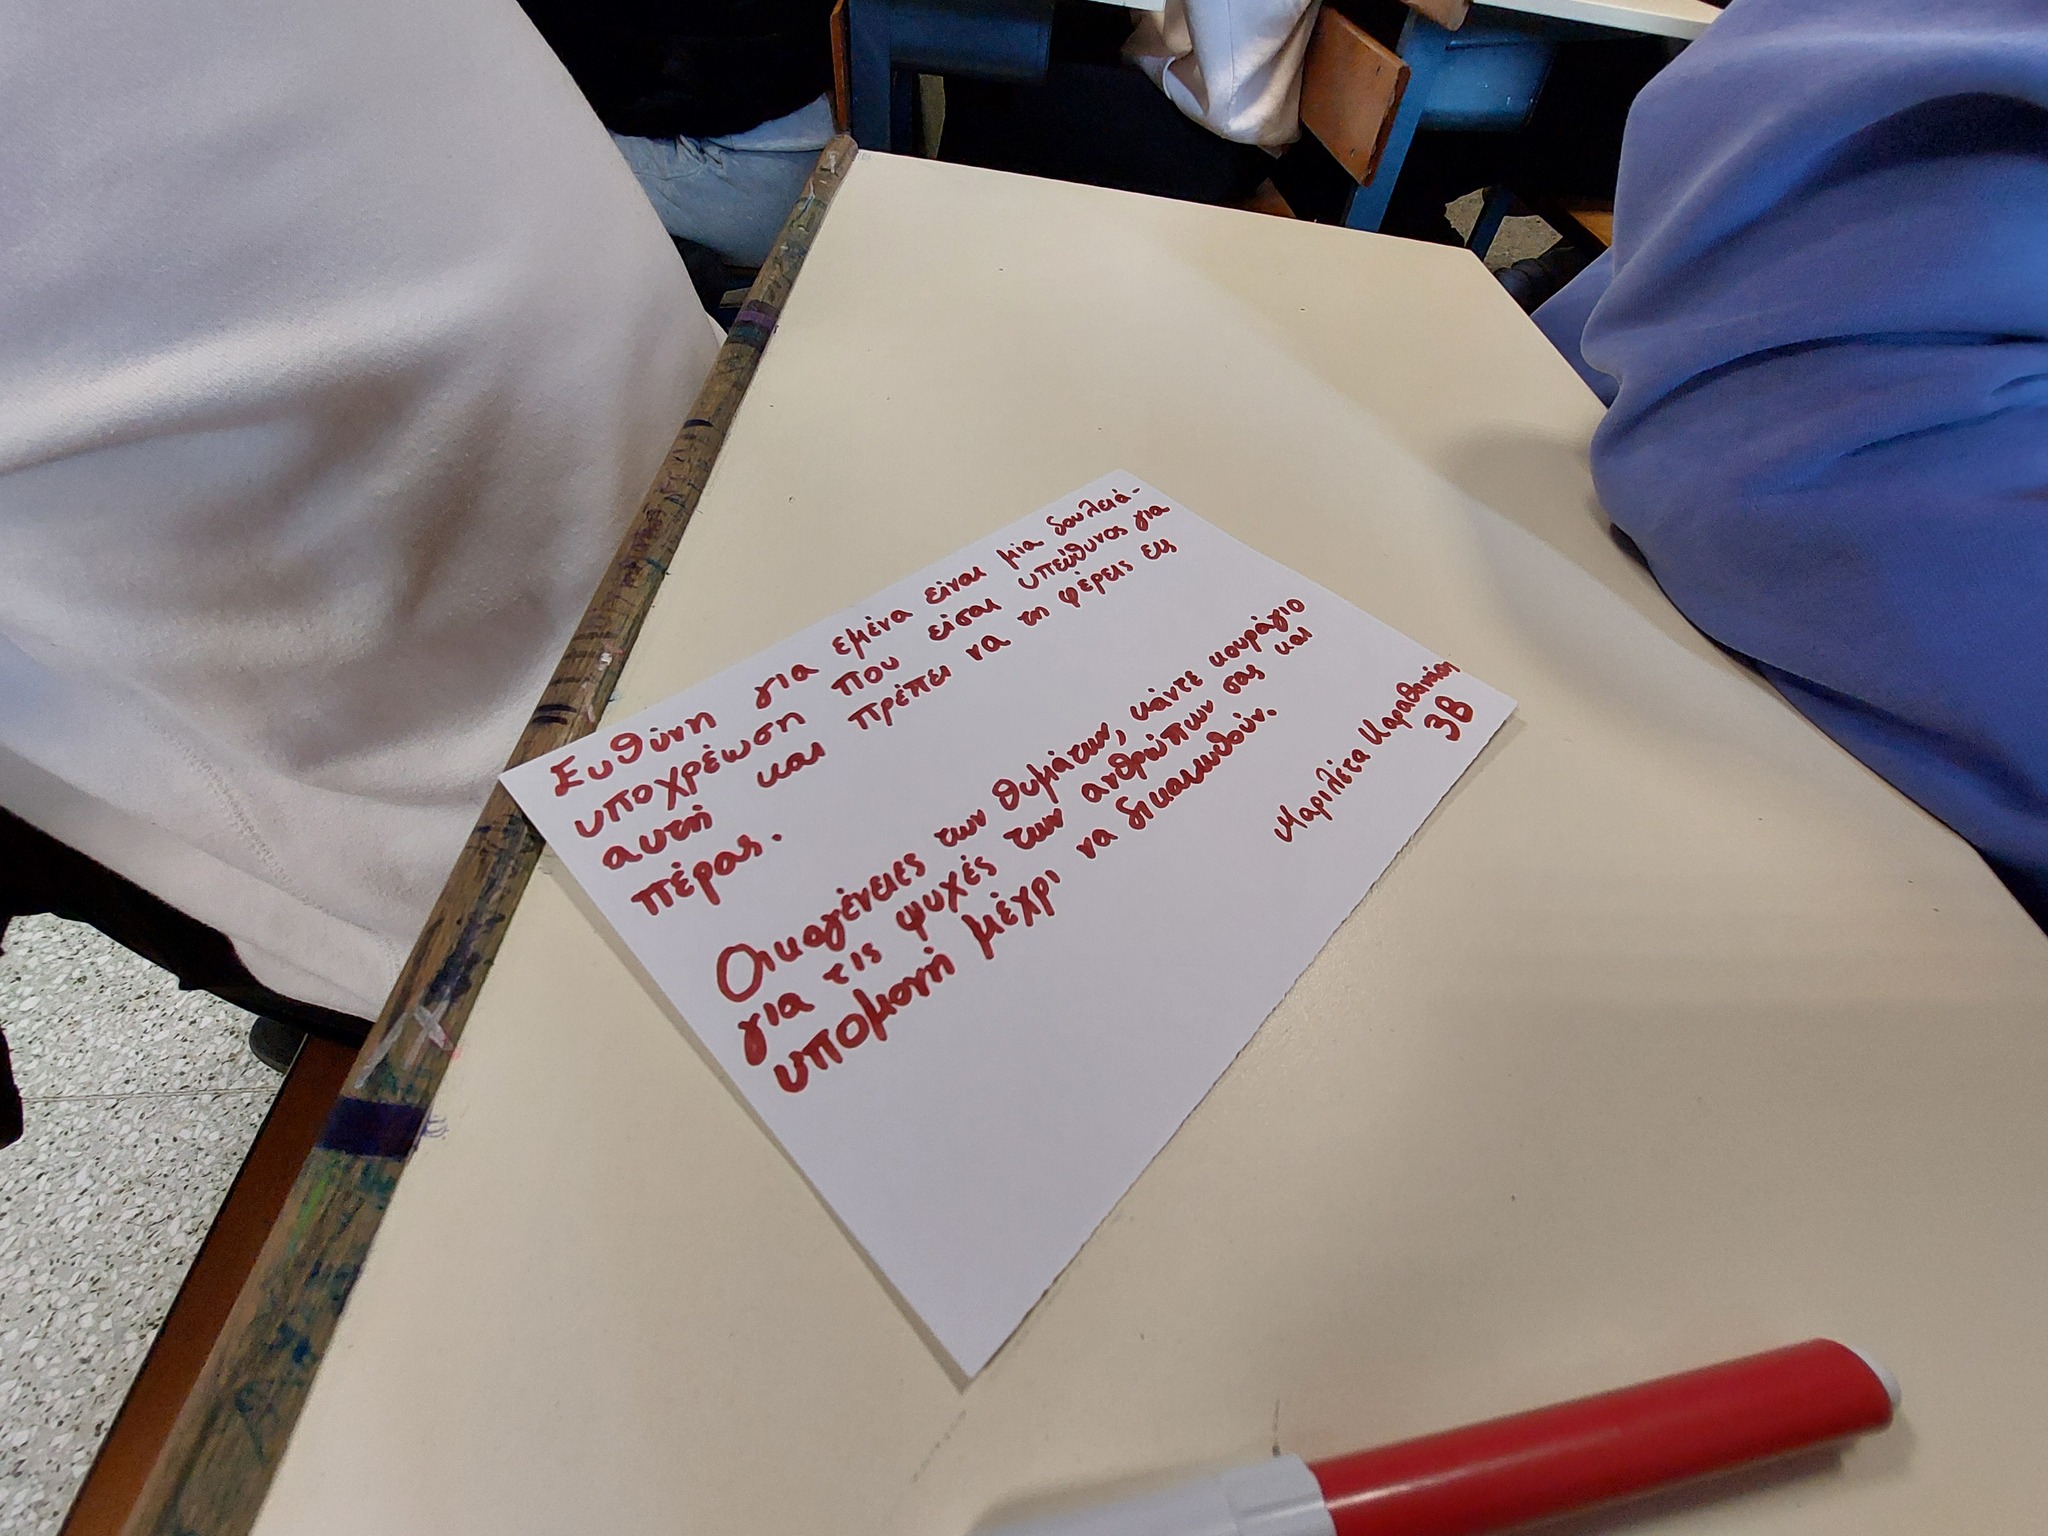 Ευθύνη για εμένα είναι μία δουλειά-
υποχρέωση που είσαι υπεύθυνος για
αυτή και πρέπει να τη φέρεις εις
πέρας.
Οικογένειες των θυμάτων, κάντε κουράγιο
για τις ψυχές των ανθρώπων σας και
υπομονή μέχρι να δικαιωθούν.
Μαριλέτα
3Β